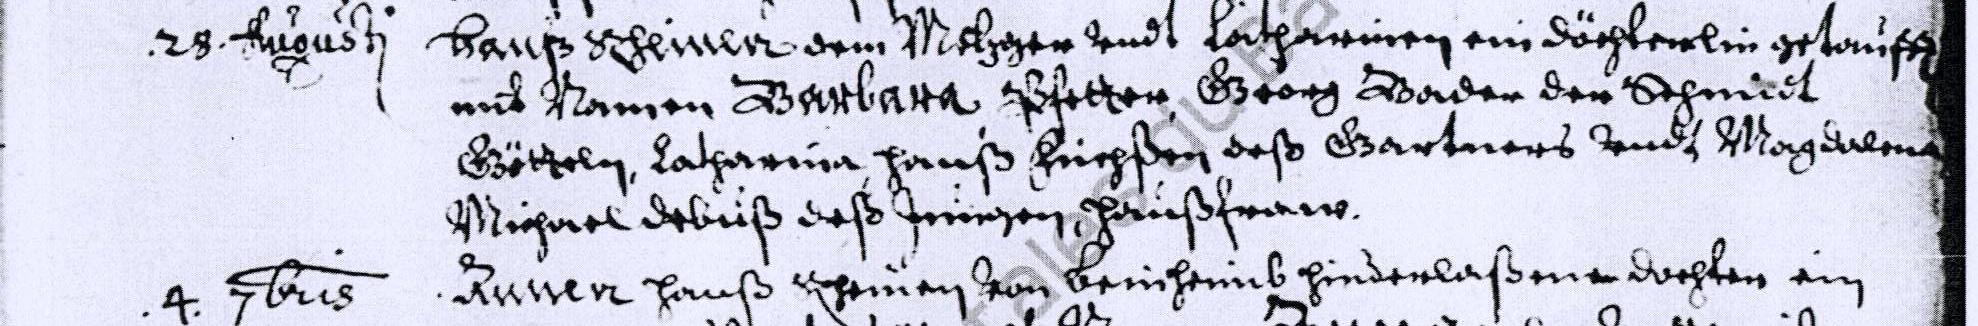 .28. Augusti Hanß Schimer dem Metzger vndt Catharinen ein döchterlin getaufft
mit Namen Barbara Pfetter, Georg Bader der Schmidt
Götteln, Catharina Hanß deß Gartners vndt Magdalena
Michael debuß deß Jungen haußfraw.
.4. 7bris Hanß von hinderlaßene dochter ein